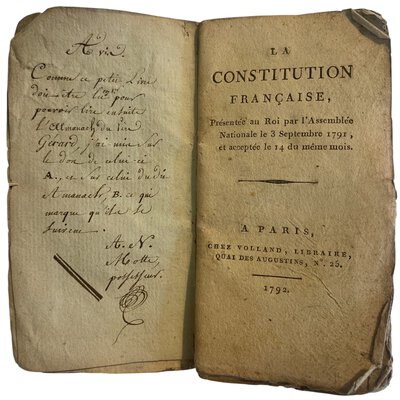 Avis.
Comme ce petit Livre
doit être lu pour
pouvoir lire ensuite
l'Almanach du Père
Gérard, j'ai mis sur
le dos de celui-ci
A., et sur celui du dit
Almanach, B. ce qui
marque qu'ils se
suivent.
A. N.
Motte,
possesseur.
LA
CONSTITUTION
FRANÇAISE,
Présentée au Roi par l'Assemblée
Nationale le 3 Septembre 1791,
et acceptée le 14 du même mois.
A PARIS,
CHEZ VOLLAND, LIBRAIRE,
QUAI DES AUGUSTINS, N°. 25.
1792.